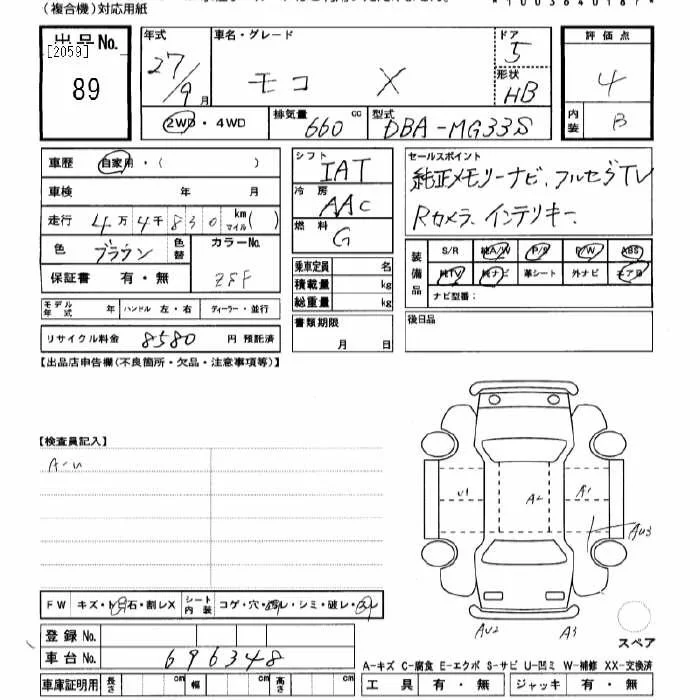 (複合機)対応用紙
出品No.
[2059]
89
年式
27/9月
車名・グレード
モコ X
ドア
5
形状
HB
評価点
4
内装
B
2WD・4WD
排気量 660 cc
型式 DBA-MG33S
車歴 自家用・( )
車検 年 月
走行 4万4千830 km マイル( )
色 ブラウン 色替
カラーNo.
ZSF
保証書 有・無
モデル年式 年 ハンドル 左・右 ディーラー・並行
リサイクル料金 8580 円 預託済
シフト
IAT
冷房
AAC
燃料
G
乗車定員 名
積載量 kg
総重量 kg
書類期限
月 日
セールスポイント
純正メモリーナビ、フルセグTV
Rカメラ、インテリキー
装備品
S/R 純A/W P/S P/W ABS
純TV 純ナビ 革シート 外ナビ エアB
ナビ型番:
後日品
【出品店申告欄(不良箇所・欠品・注意事項等)】
【検査員記入】
A・U
U1
A2
A1
AU3
AU2
A3
スペア
FW キズ・ 石・割レX シート内装 コゲ・穴・ レ・シミ・破レ・
登録No.
車台No. 696348
A-キズ C-腐食 E-エクボ S-サビ U-凹ミ W-補修 XX-交換済
車庫証明用 長さ cm 幅 cm 高さ cm
工具 有・無 ジャッキ 有・無